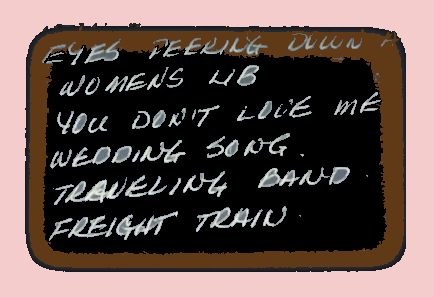 EYES PEERING DOWN
WOMENS LIB
YOU DON'T LOVE ME
WEDDING SONG.
TRAVELING BAND
FREIGHT TRAIN